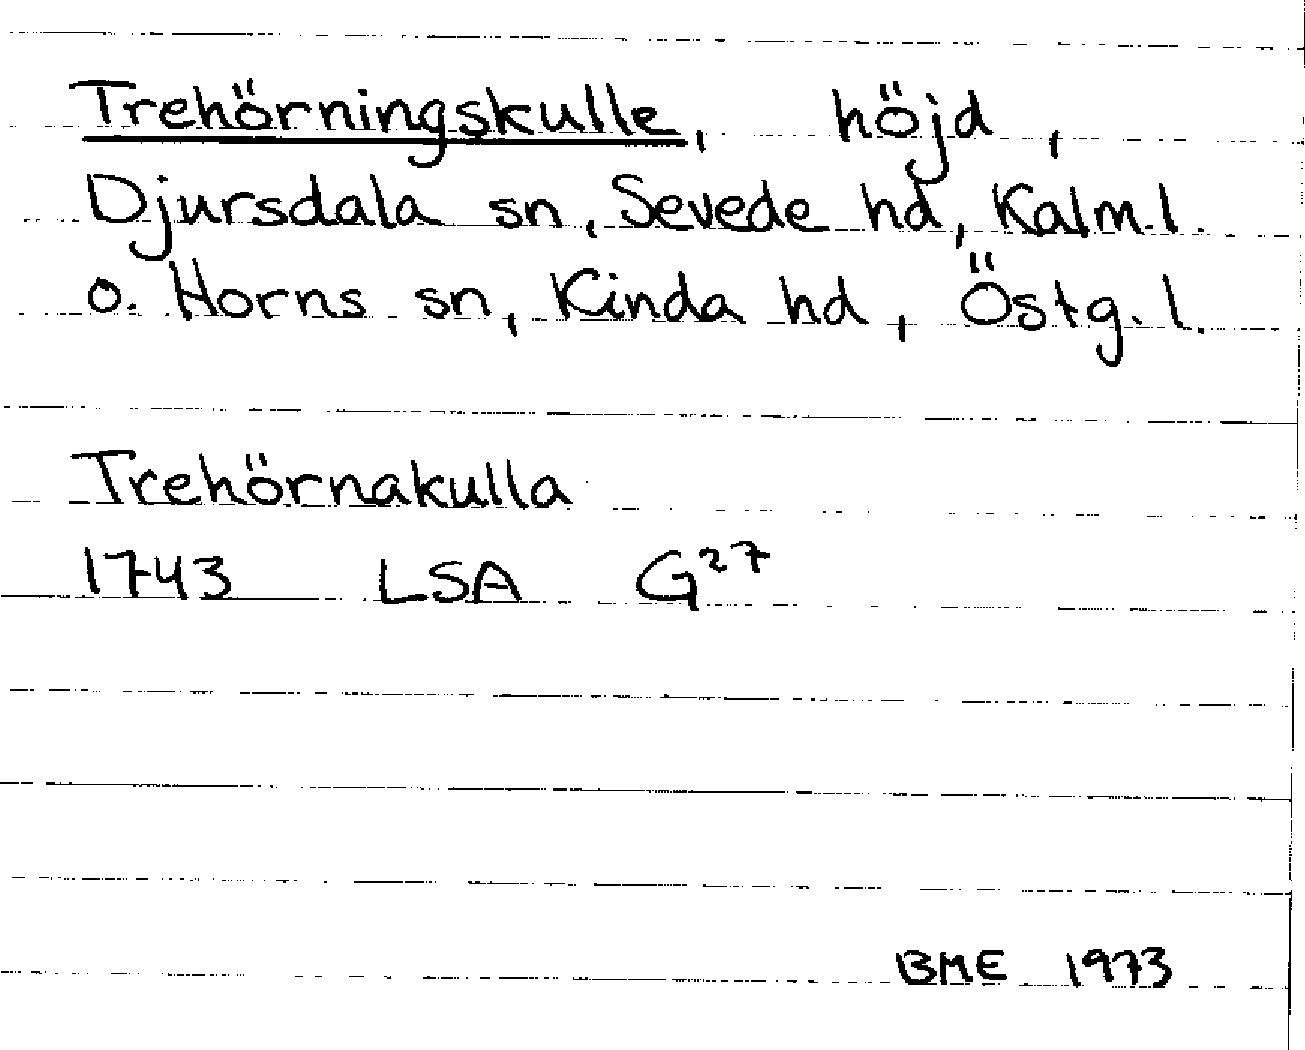 Trehörningskulle, höjd,
Djursdala sn, Sevede hd, Kalm.l.
o. Horns sn, Kinda hd, Östg.l.
Trehörnakulla
1743 LSA G27
BME 1973